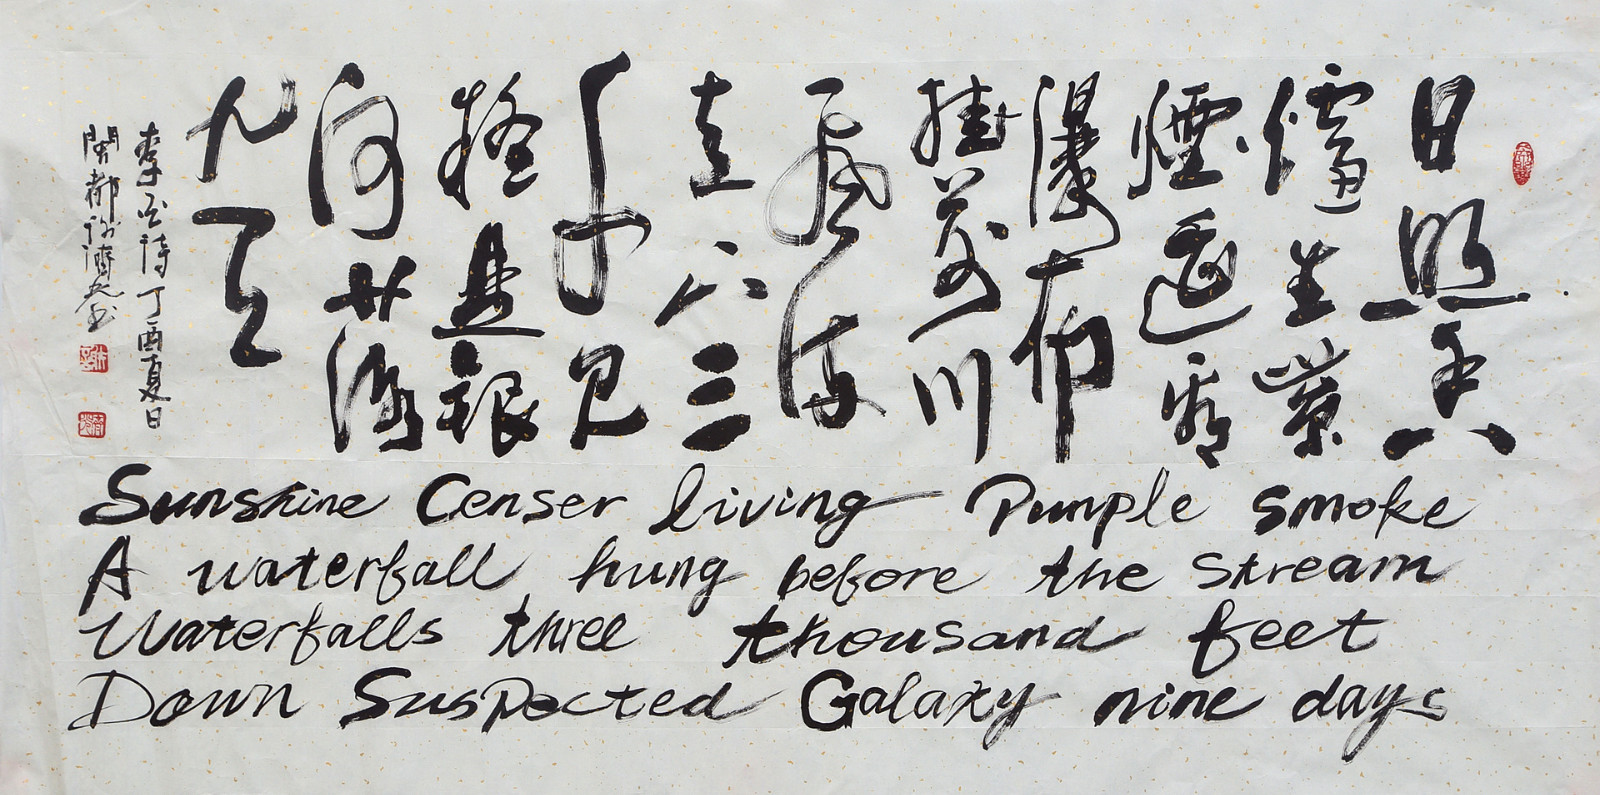 日照香
爐生紫
煙遙看
瀑布
掛前川
飛流
直下三
千尺
疑是銀
河落
九天
李白詩丁酉夏日
閩都
Sunshine Censer living Pumple smoke
A waterfall hung before the stream
Waterfalls three thousand feet
Down Suspected Galaxy nine days